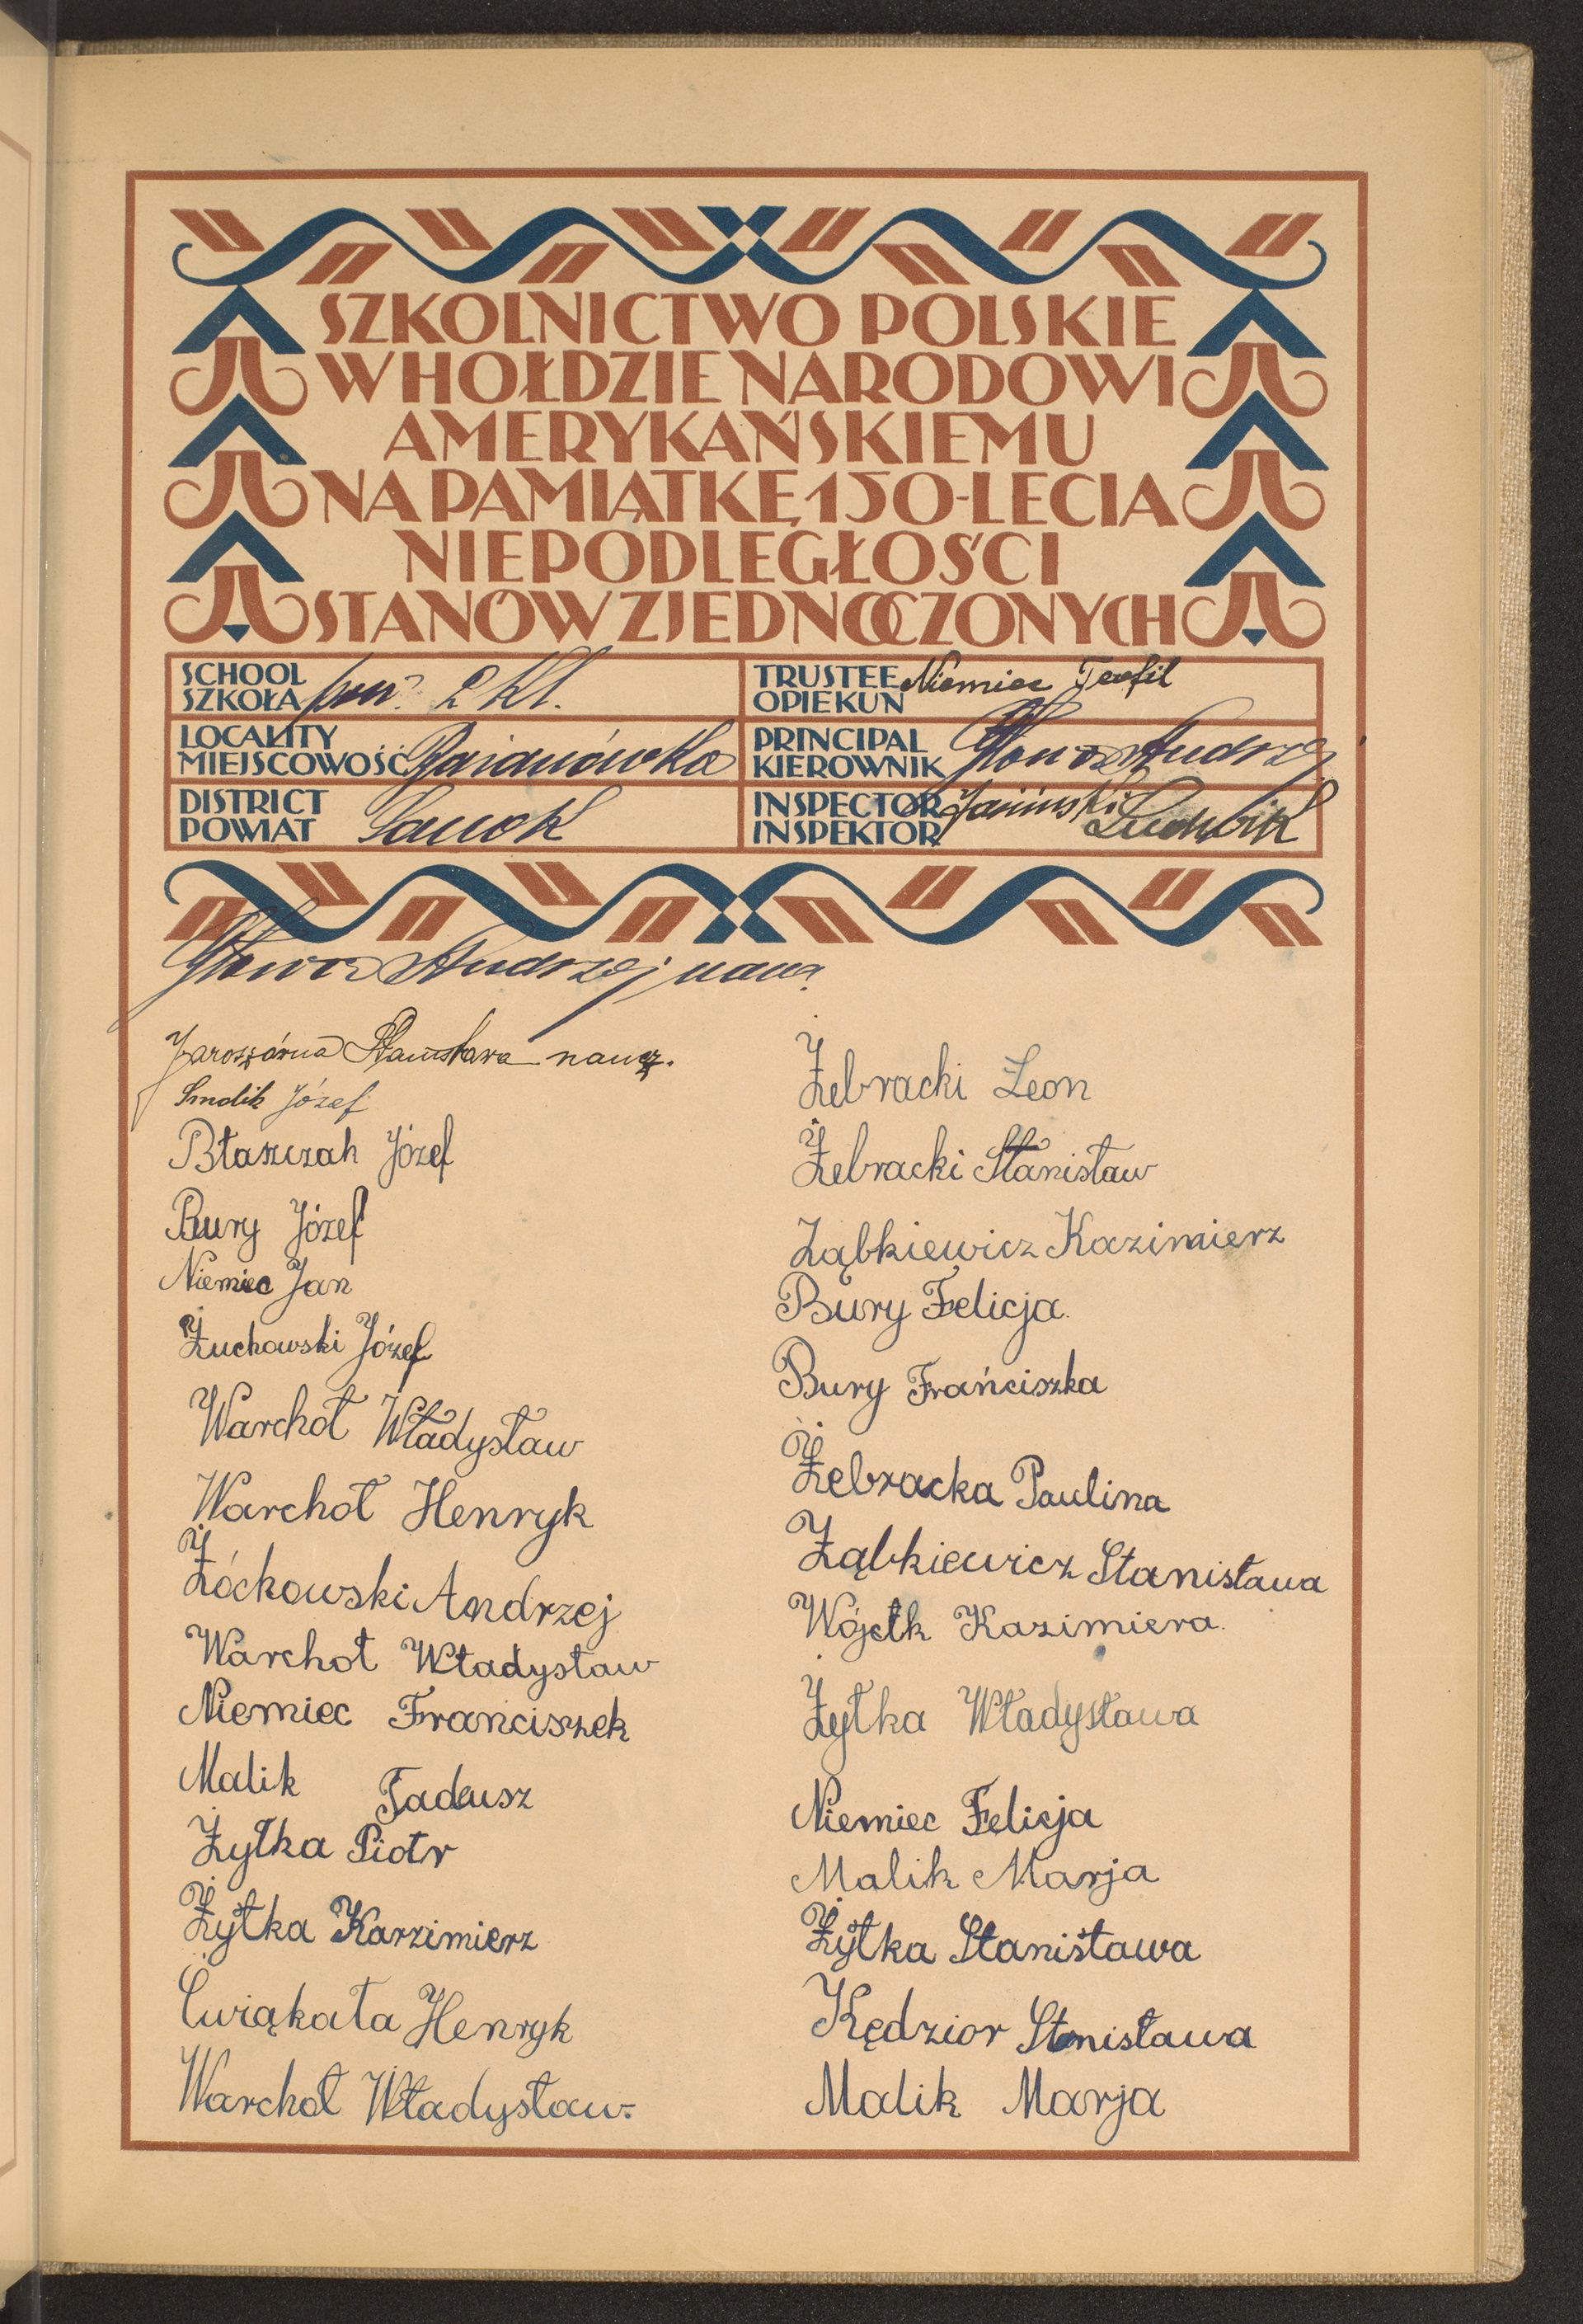 SZKOLNICTWO POLSKIE
W HOŁDZIE NARODOWI
AMERYKAŃSKIEMU
NA PAMIĄTKĘ 150-LECIA
NIEPODLEGŁOŚCI
STANÓW ZJEDNOCZONYCH
SCHOOL
SZKOŁA 2 kl.
TRUSTEE
OPIEKUN Niemiec Teofil
LOCALITY
MIEJSCOWOŚĆ Bażanówka
PRINCIPAL
KIEROWNIK Andrzej
DISTRICT
POWIAT Sanok
INSPECTOR
INSPEKTOR Ludwik
Andrzej naucz.
Stanisława naucz.
Smolik Józef
Błaszczak Józef
Bury Józef
Niemiec Jan
Żuchowski Józef
Warchoł Władysław
Warchoł Henryk
Żóchowski Andrzej
Warchoł Władysław
Niemiec Franciszek
Malik Tadeusz
Żyłka Piotr
Żyłka Karzimierz
Ćwiąkała Henryk
Warchoł Władysław.
Żebracki Leon
Żebracki Stanisław
Ząbkiewicz Kazimierz
Bury Felicja.
Bury Frańciszka
Żebracka Paulina
Ząbkiewicz Stanisława
Wójcik Kazimiera.
Żyłka Władysława
Niemiec Felicja
Malik Marja
Żyłka Stanisława
Kędzior Stanisława
Malik Marja